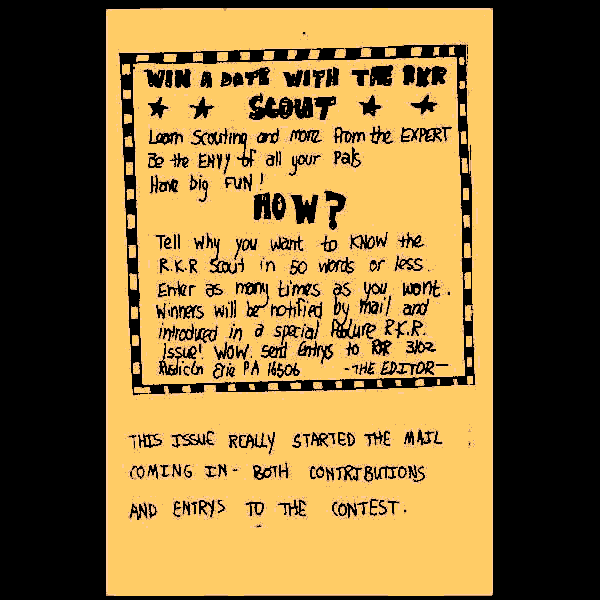 WIN A DATE WITH THE RKR
SCOUT
Learn Scouting and more from the EXPERT
Be the ENVY of all your Pals
Have big FUN!
HOW?
Tell why you want to KNOW the
R.K.R Scout in 50 words or less.
Enter as many times as you want.
Winners will be notified by Mail and
introduced in a special R.K.R.
Issue! WOW. send Entrys to RKR 3102
Erie PA 16506 -THE EDITOR-
THIS ISSUE REALLY STARTED THE MAIL
COMING IN- BOTH CONTRIBUTIONS
AND ENTRYS TO THE CONTEST.